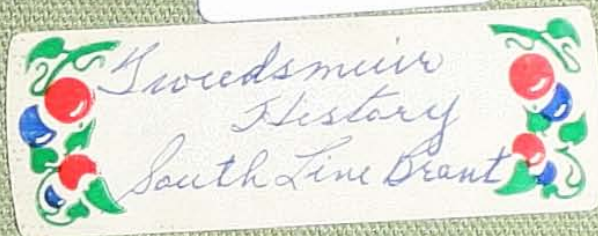 Tweedsmuir
History
South Line Brant